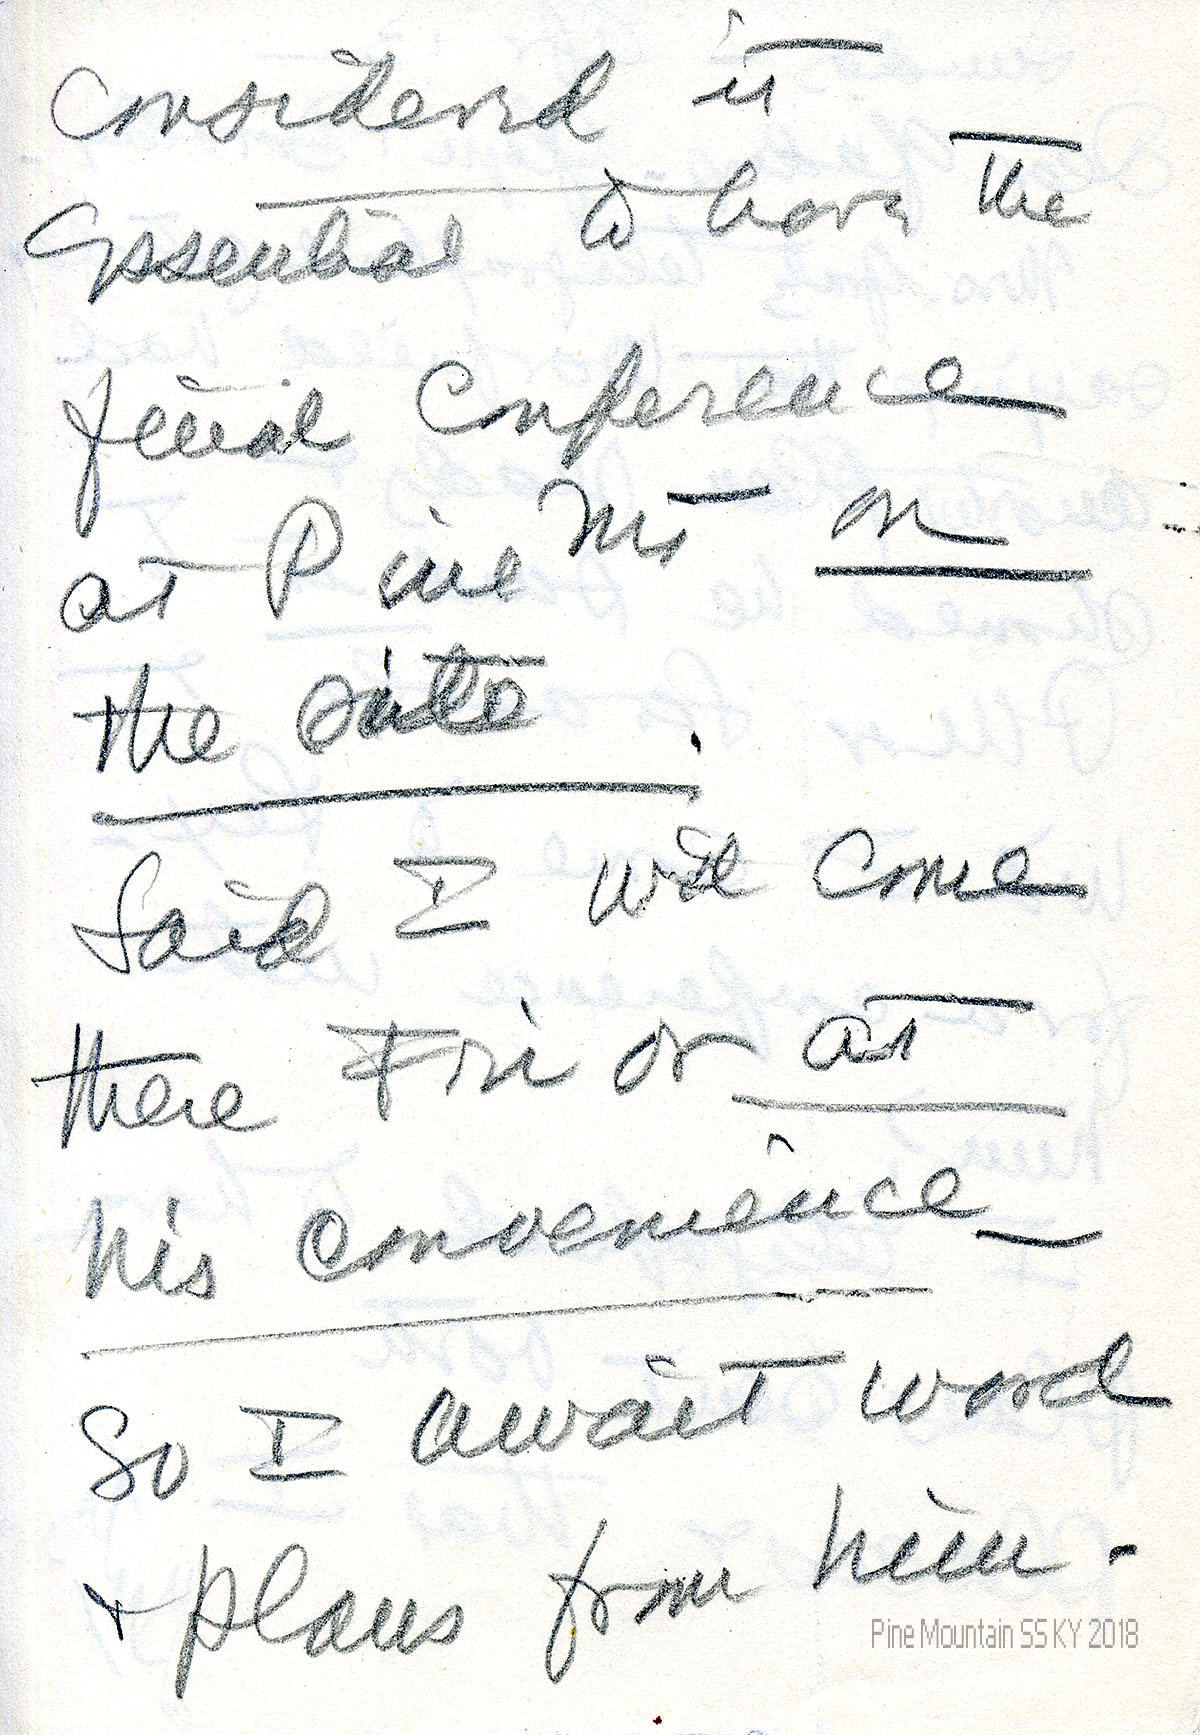 considered it
essential to have the
final conference
at Pine Mt on
the site.
Said I will come
there Fri or at
his convenience
So I await word
+ plans from him.
Pine Mountain SS KY 2018